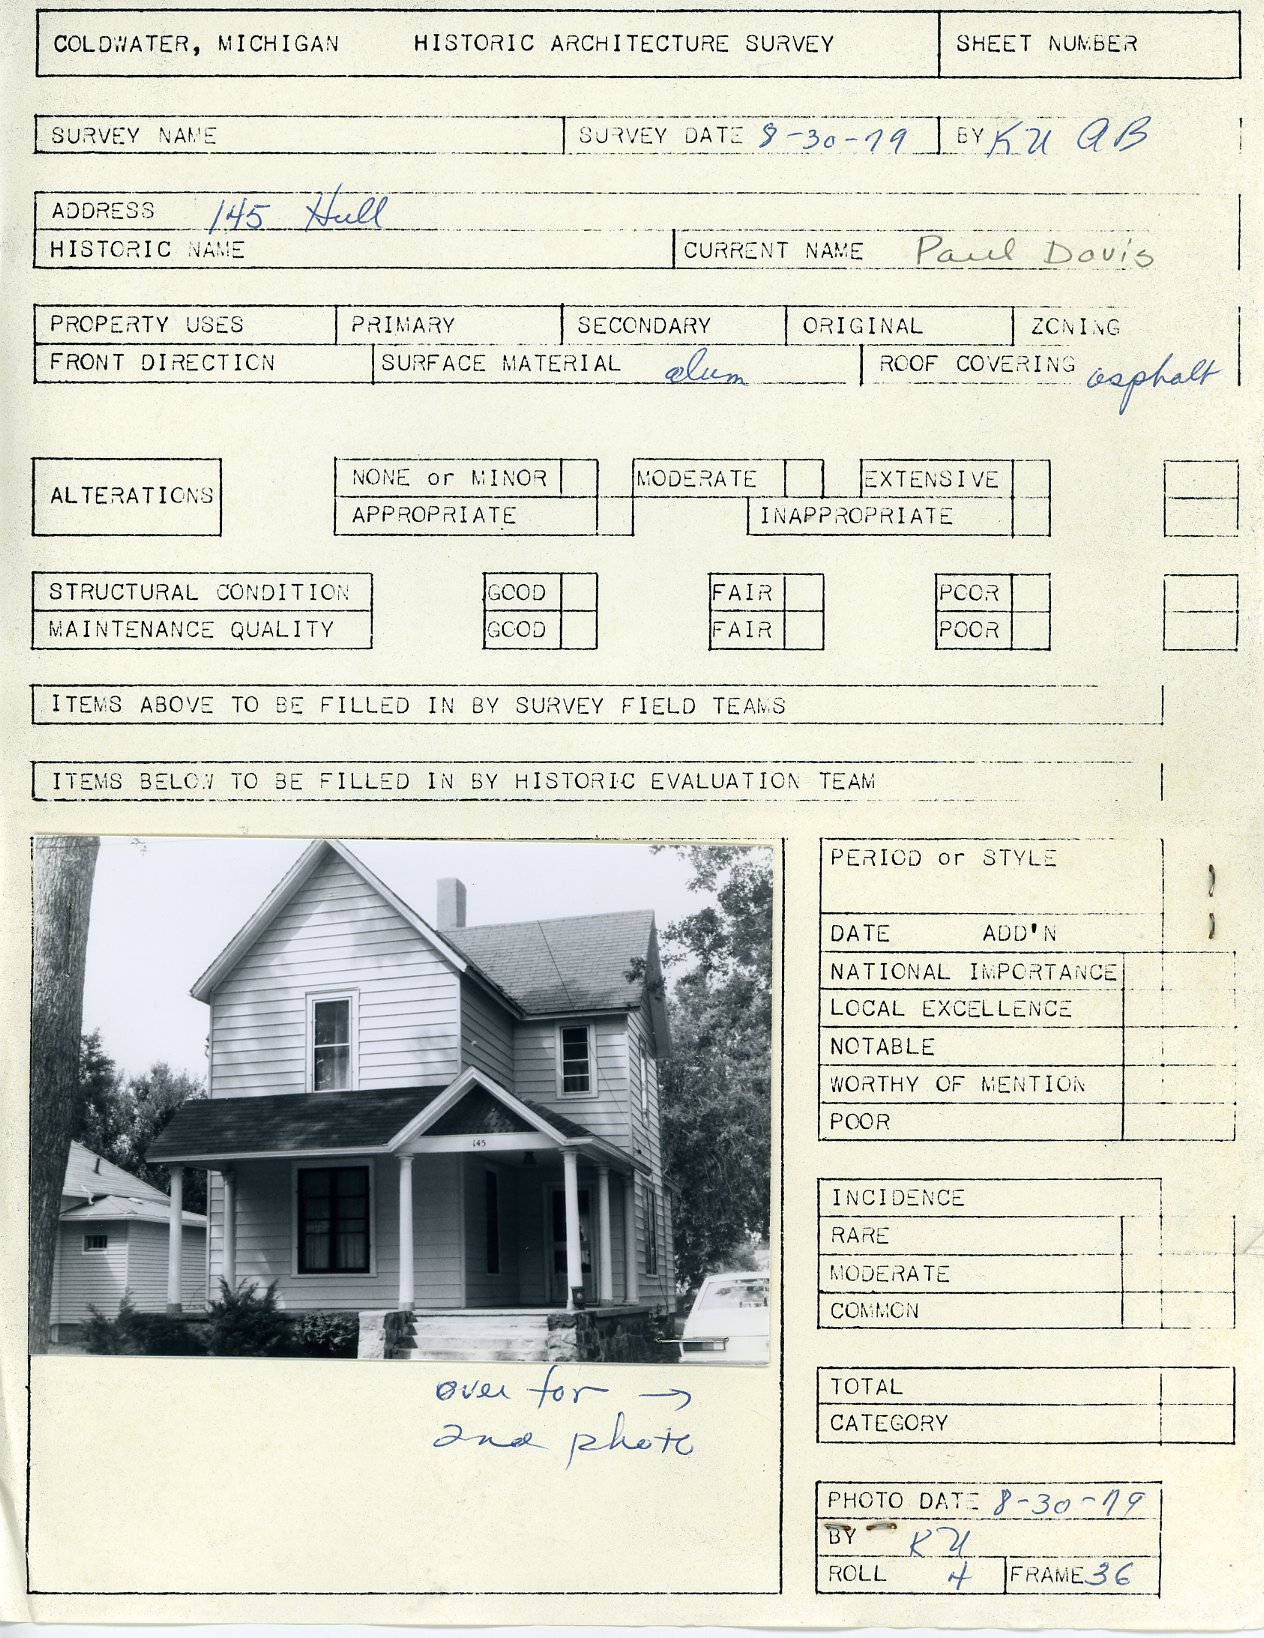 COLDWATER, MICHIGAN HISTORIC ARCHITECTURE SURVEY SHEET NUMBER
SURVEY NAME SURVEY DATE 8-30-79 BY KU AB
ADDRESS 145 Hull
HISTORIC NAME CURRENT NAME Paul Davis
PROPERTY USES PRIMARY SECONDARY ORIGINAL ZONING
FRONT DIRECTION SURFACE MATERIAL alum ROOF COVERING asphalt
ALTERATIONS NONE or MINOR MODERATE EXTENSIVE
APPROPRIATE INAPPROPRIATE
STRUCTURAL CONDITION GOOD FAIR POOR
MAINTENANCE QUALITY GOOD FAIR POOR
ITEMS ABOVE TO BE FILLED IN BY SURVEY FIELD TEAMS
ITEMS BELOW TO BE FILLED IN BY HISTORIC EVALUATION TEAM
145
over for →
2nd photo
PERIOD or STYLE
DATE ADD'N
NATIONAL IMPORTANCE
LOCAL EXCELLENCE
NOTABLE
WORTHY OF MENTION
POOR
INCIDENCE
RARE
MODERATE
COMMON
TOTAL
CATEGORY
PHOTO DATE 8-30-79
BY KU
ROLL 4 FRAME 36